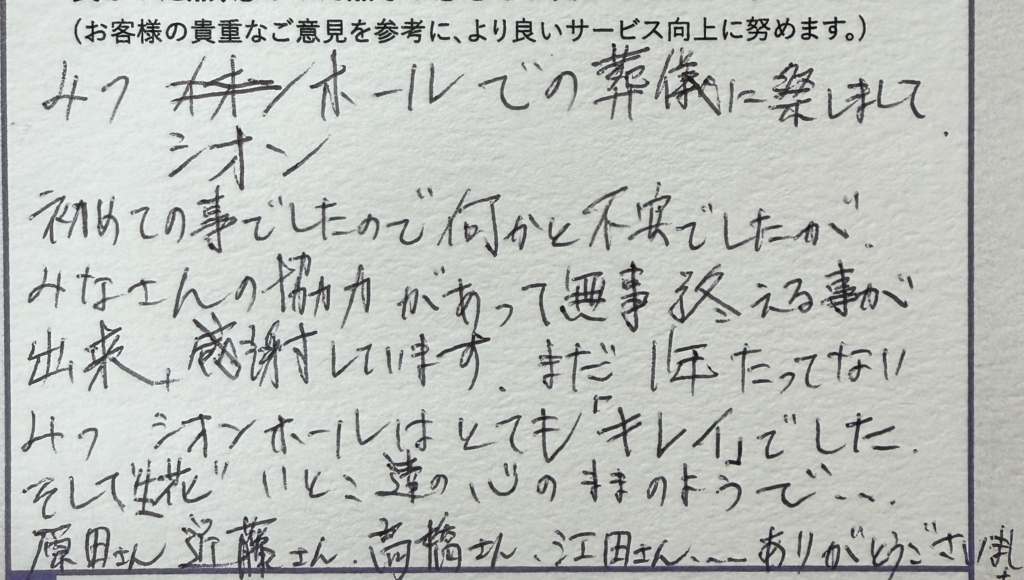 (お客様の貴重なご意見を参考に、より良いサービス向上に努めます。)
みつ ホールでの葬儀に祭しまして
シオン
初めての事でしたので何かと不安でしたが、
みなさんの協力があって無事終える事が
出来、感謝しています。まだ1年たってない
みつ シオンホールはとても「キレイ」でした。
そして"生花"いとこ達の心のままのようで、、、
原田さん 近藤さん、高橋さん、江田さん、、、ありがとうございました